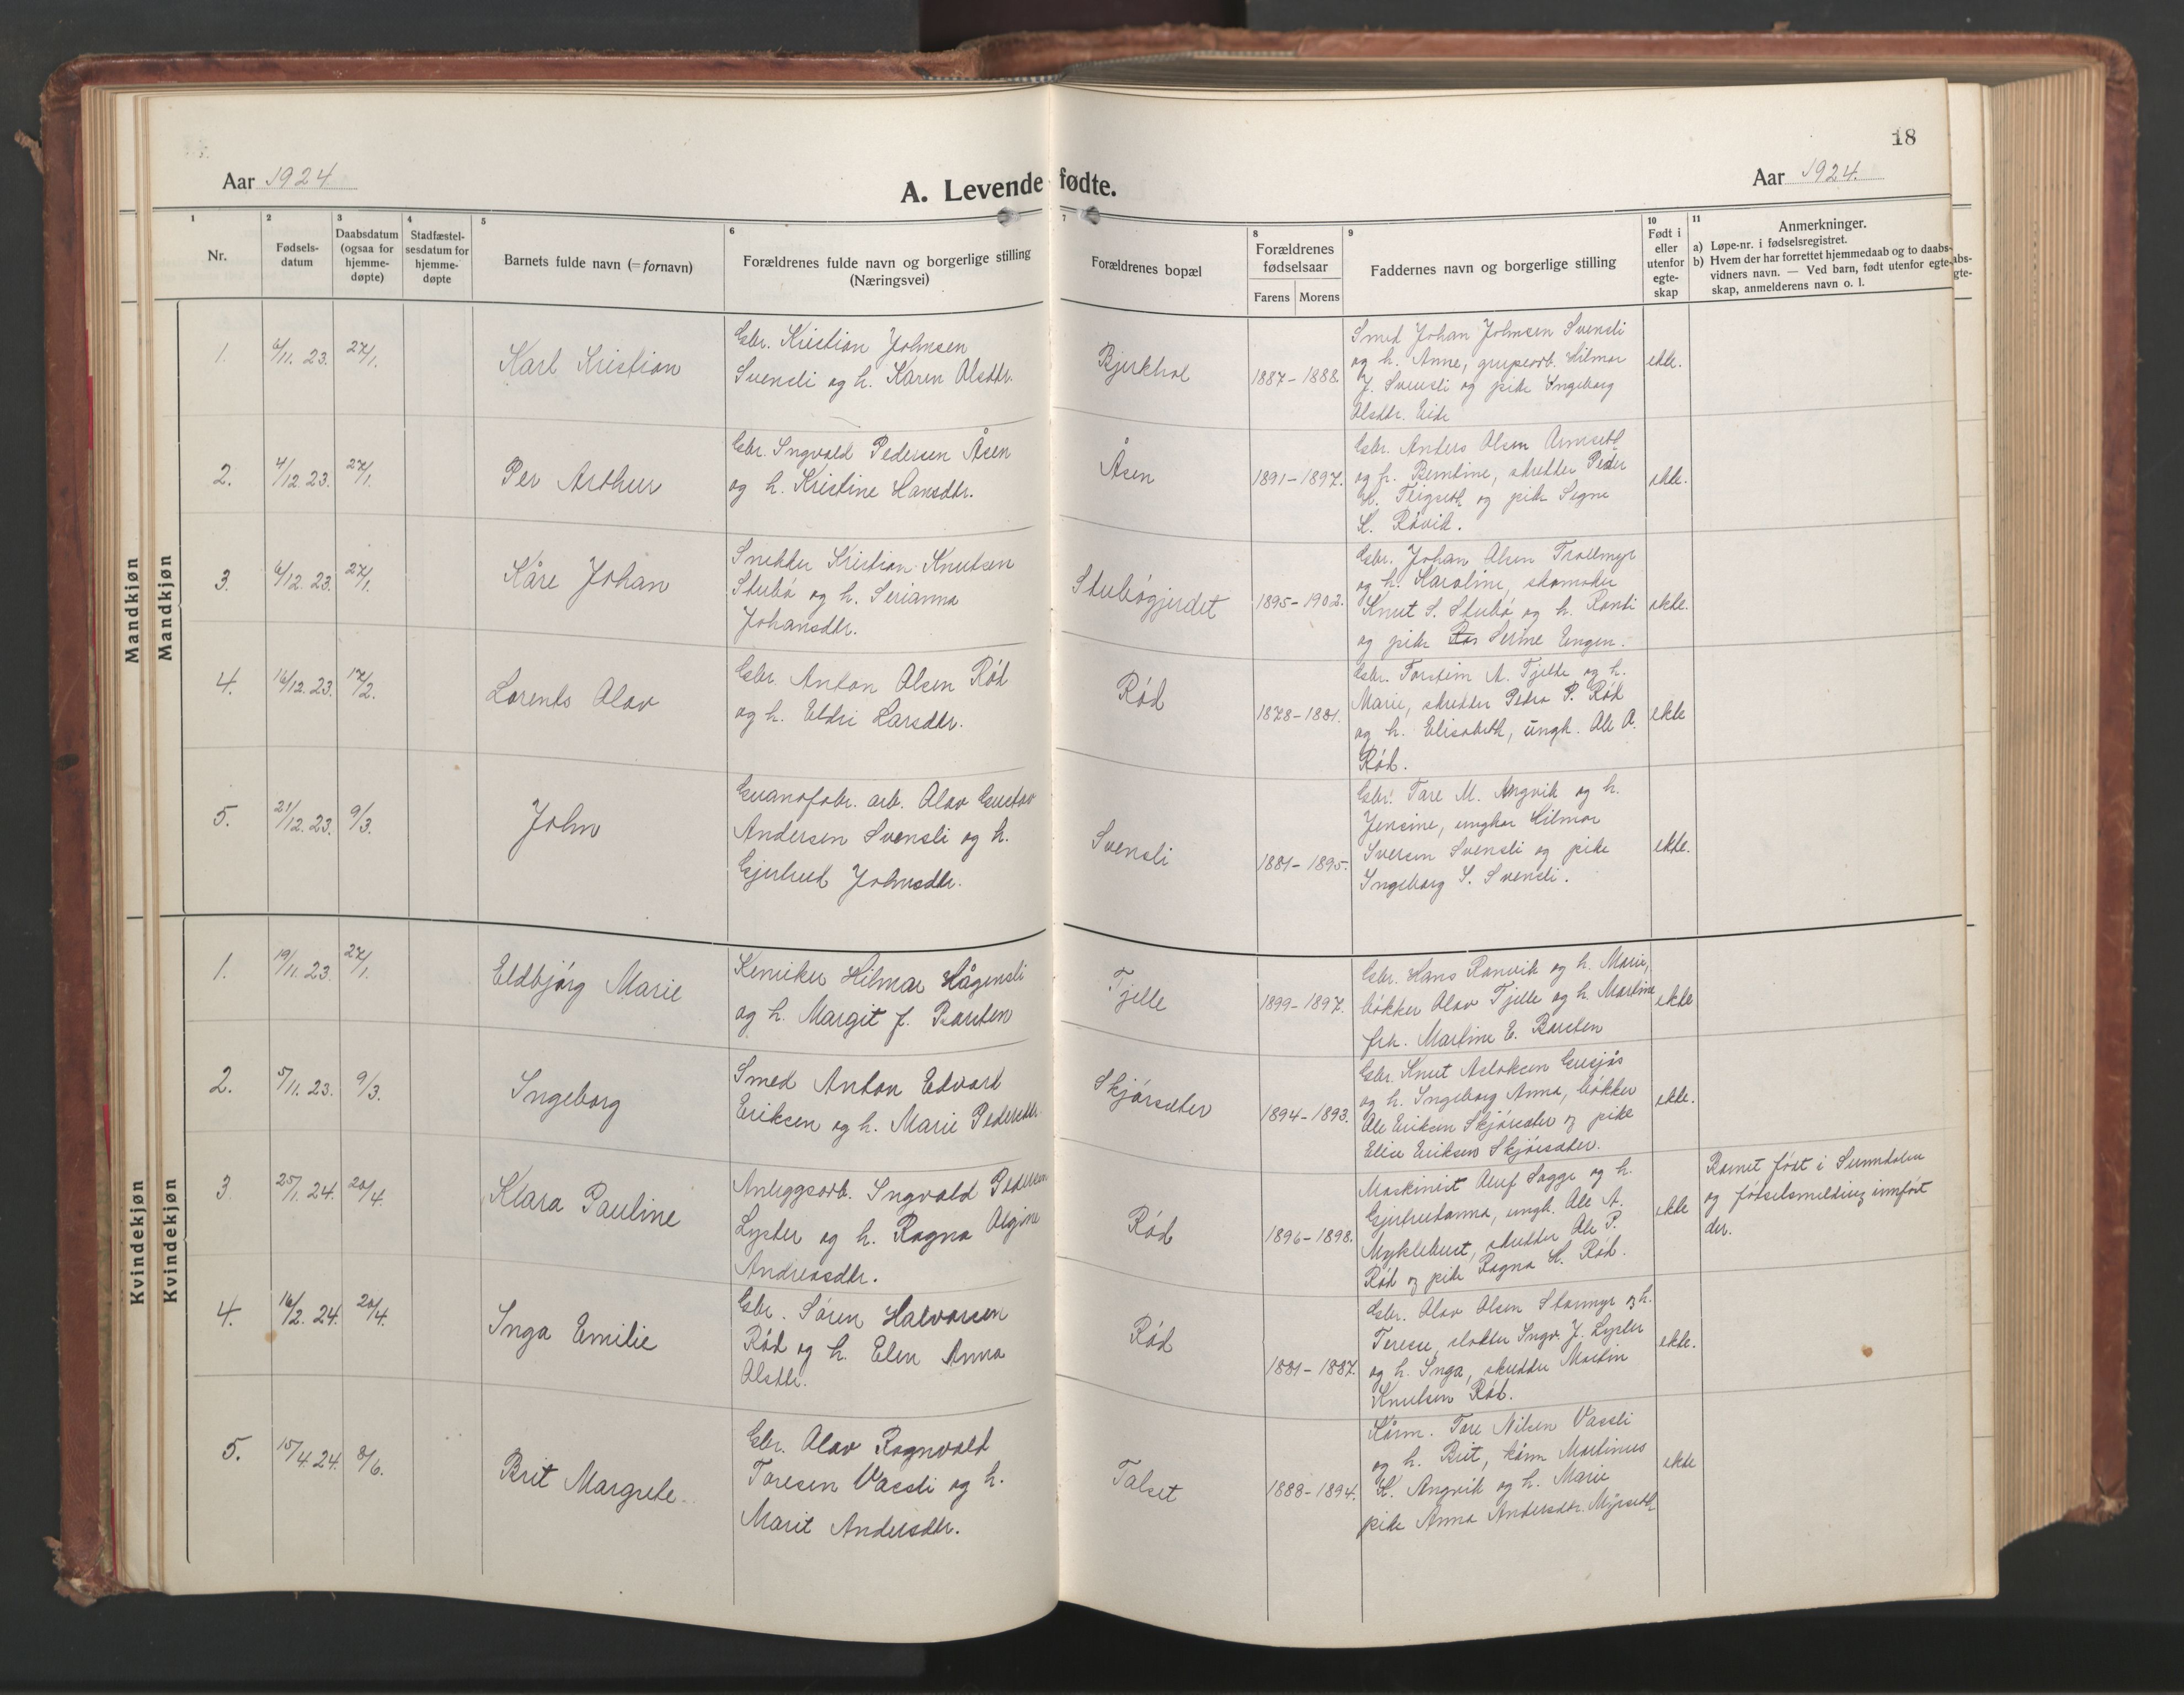 18
Aar 1924
A. Levende fødte.
Aar 1924.
1
2
3
4
5
6
7
8
9
10
11
Nr.
Fødsels-
datum
Daabsdatum
(ogsaa for
hjemme-
døpte)
Stadfæstel-
sesdatum for
hjemme-
døpte
Barnets fulde navn (=fornavn)
Forældrenes fulde navn og borgerlige stilling
(Næringsvei)
Forældrenes bopæl
Forældrenes
fødselsaar
Farens
Morens
Faddernes navn og borgerlige stilling
Født i
eller
utenfor
egte-
skap
Anmerkninger.
a) Løpe-nr. i fødselsregistret.
b) Hvem der har forrettet hjemmedaab og to daabs-
vidners navn. — Ved barn, født utenfor egte-
skap, anmelderens navn o. l.
abs-
gte-
Mandkjøn
Mandkjøn
1.
6/11. 23.
27/1.
Karl Kristian
Gbr. Kristian Johnsen
Svensli og h. Karen Olsdtr.
Bjerkhol
1887-1888.
Smed Johan Johnsen Svensli
og h. Anne, grubearb. Hilmar
J. Svensli og pike Ingeborg
Olsdtr. Eide
ekte.
2.
4/12. 23.
27/1.
Per Arthur
Gbr. Ingvald Pedersen Åsen
og h. Kristine Hansdtr.
Åsen
1891-1897.
Gbr. Anders Olsen
og h. Berntine, skredder Peder
H. Teigseth og pike Signe
K. Røvik.
ekte.
3.
6/12. 23.
27/1.
Kåre Johan
Snekker Kristian Knutsen
Stubø og h. Serianna
Johansdtr.
Stubøgjerdet
1895-1902.
Gbr. Johan Olsen Trollmyr
og h. Karoline, skomaker
Knut S. Stubø og h. Ranti
og pike Serine Engen.
ekte.
4.
16/12. 23.
17/2.
Lorents Olav
Gbr. Anton Olsen Rød
og h. Eldri Larsdtr.
Rød
1878-1881.
Gbr. Torstein A. Tjelle og h.
Marie, skredder Peder P. Rød
og h. Elisabeth, ungk. Ole A.
Rød.
ekte
5.
21/12. 23.
9/3.
John
Guanofabr. arb. Olav Gustav
Andersen Svensli og h.
Gjertrud Johnsdtr.
Svensli
1881-1895.
Gbr. Tore M. Angvik og h.
Jensine, ungkar Hilmar
Iversen Svensli og pike
Ingeborg I. Svensli.
ekte.
Kvindekjøn
Kvindekjøn
1.
19/11. 23.
27/1.
Eldbjørg Marie
Kemiker Hilmar Hågensli
og h. Margit f. Bausten
Tjelle
1899-1897.
Gbr. Hans Ranvik og h. Marie,
bøkker Olav Tjelle og h. Martine
frk. Martine E. Bausten
ekte
2.
5/11. 23.
9/3.
Ingeborg
Smed Anton Edvart
Eriksen og h. Marie Pedersdtr.
Skjørsæter
1894-1893.
Gbr. Knut Aslaksen Gusjås
og h. Ingeborg Anna, bøkker
Ole Eriksen Skjørsæter og pike
Elise Eriksen Skjørsæter.
ekte.
3.
25/1. 24.
20/4.
Klara Pauline
Anleggsarb. Ingvald Pedersen
Lyster og h. Ragna Olgine
Andreasdtr.
Rød
1896-1898.
Maskinist Oluf Sagge og h.
Gjertrudanna, ungk. Ole A.
Myklebust, skredder Ole P.
Rød og pike Ragna H. Rød.
ekte
Barnet født i Sunndalen
og fødselsmelding innført
der.
4.
16/2. 24.
20/4.
Inga Emilie
Gbr. Søren Halvorsen
Rød og h. Elen Anna
Olsdtr.
Rød
1881-1887.
Gbr. Olav Olsen Stormyr og h.
Terese, slakter Ingv. J. Lyster
og h. Inga, skredder Martin
Knutsen Rød.
ekte.
5.
15/4. 24.
8/6.
Brit Margrete
Gbr. Olav Ragnvald
Toresen Vasli og h.
Marit Andersdtr.
Talset
1888-1894.
Kårm. Tore Nilsen Vasli
og h. Brit, kårm. Martinus
K. Angvik og h. Marie
pike Anna Andersdtr. Myrseth.
ekte